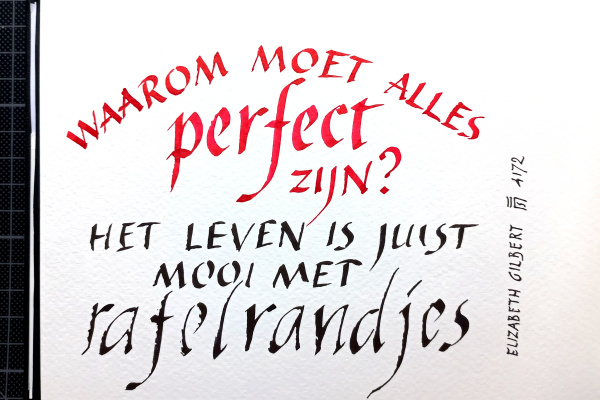 WAAROM MOET ALLES
perfect
ZIJN?
HET LEVEN IS JUIST
MOOI MET
rafelrandjes
ELIZABETH GILBERT 4172